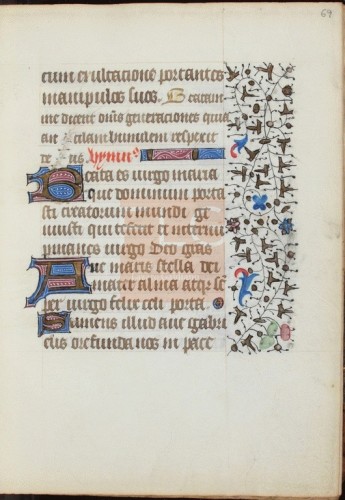 69
cum exultacione portantes
manipulos suos. Beatam
me dicent omnes generaciones quia
ancillam humilem respexit
deus ymnus
Beata es virgo maria
que dominum porta
sti creatorem mundi ge
nuisti qui te fecit et in eternum
permanes virgo Deo gras
Ave maris stella dei
mater alma atq3 se
per virgo felix celi porta
Sumens illud ave gabri
elis ore funda nos in pace